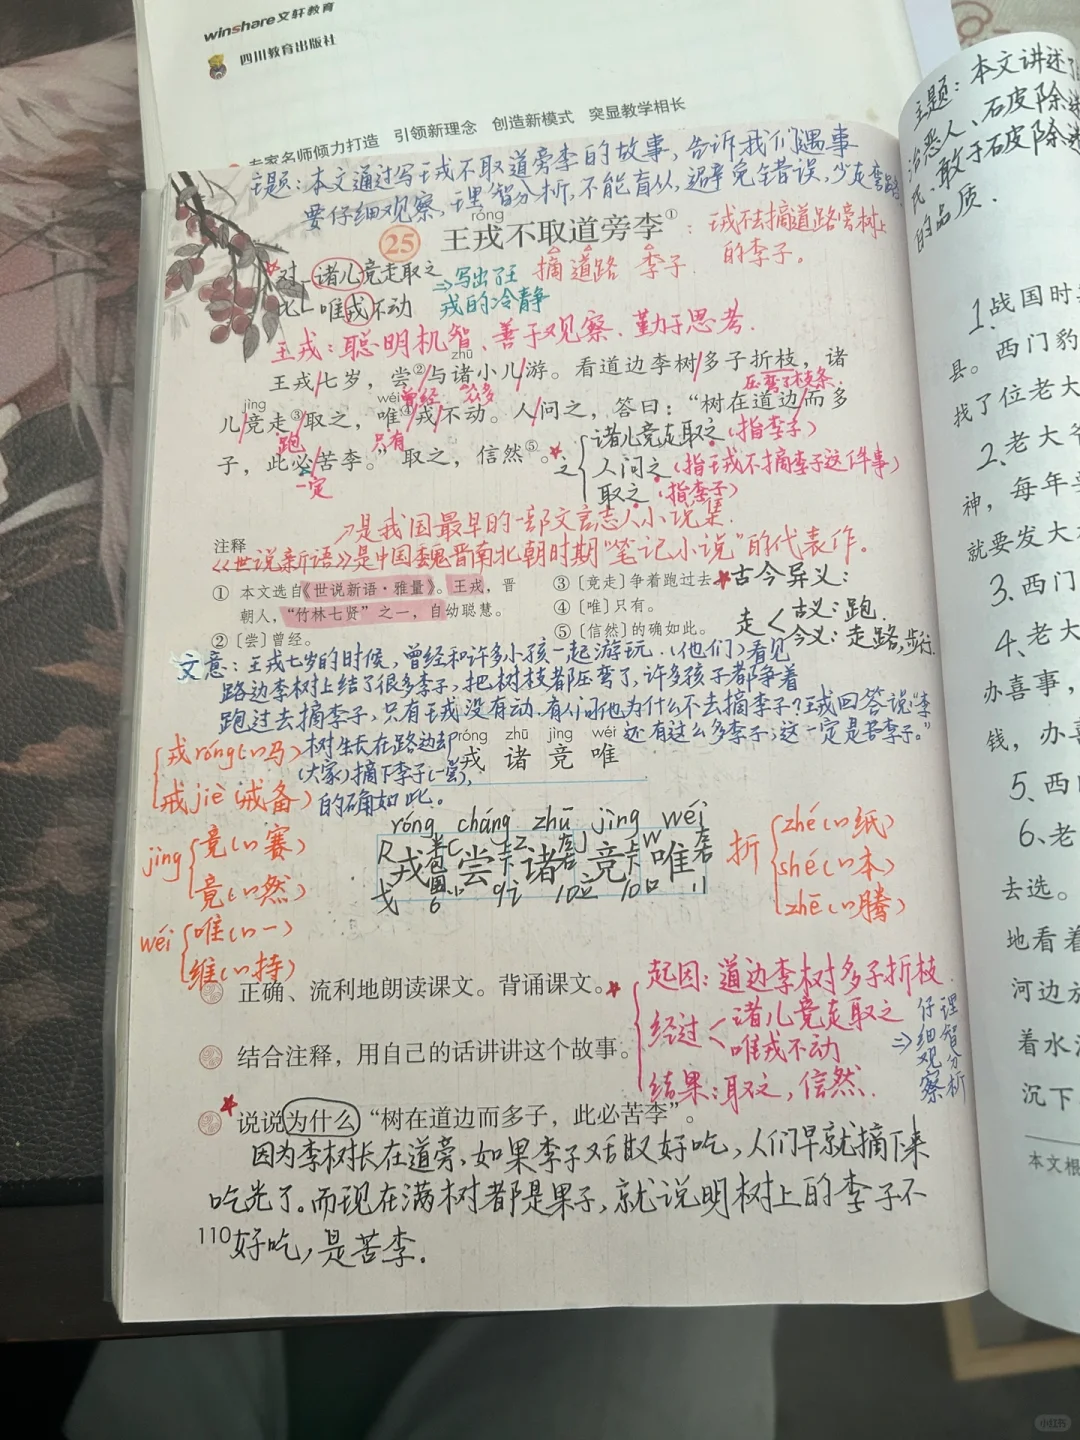 winshare文轩教育
四川教育出版社
专家名师倾力打造 引领新理念 创造新模式 突显教学相长
主题:本文通过写王戎不取道旁李的故事,告诉我们遇事
要仔细观察,理智分析,不能盲从,避免错误,少走弯路。
róng
25 王戎不取道旁李①
:王戎不去摘道路旁树上
的李子。
摘 道路 李子
对 诸儿竞走取之
比 唯戎不动
⇒写出了王
戎的冷静
王戎:聪明机智、善于观察、勤于思考.
zhū
王戎/七岁,尝②/与诸小儿/游。看道边李树/多子折枝,诸
曾经 众多 压弯了枝条
jìng wéi
儿/竞走③/取之,唯④/戎/不动。人/问之,答曰:“树在道边/而多
跑 只有
子,此必/苦李。”取之,信然⑤。
一定
之
诸儿竞走取之(指李子)
人问之(指王戎不摘李子这件事)
取之(指李子)
↗是我国最早的一部文言志人小说集.
注释
《世说新语》是中国魏晋南北朝时期“笔记小说”的代表作。
① 本文选自《世说新语·雅量》。王戎,晋
朝人,“竹林七贤”之一,自幼聪慧。
② 〔尝〕曾经。
③ 〔竞走〕争着跑过去。
④ 〔唯〕只有。
⑤ 〔信然〕的确如此。
古今异义:
走 < 古义:跑.
今义:走路,步行.
文意:王戎七岁的时候,曾经和许多小孩一起游玩.(他们)看见
路边李树上结了很多李子,把树枝都压弯了,许多孩子都争着
跑过去摘李子,只有王戎没有动.有人问他为什么不去摘李子?王戎回答说:“李
树生长在路边却还有这么多李子,这一定是苦李子。”
(大家)摘下李子(一尝),
的确如此。
róng zhū jìng wéi
戎 诸 竞 唯
戎róng(~马)
戒jiè(戒备)
jìng
竞(~赛)
竟(~然)
wéi
唯(~一)
维(~持)
róng cháng zhū jìng wéi
戎 尝 诸 竞 唯
R C Z J W
戈 6 9 10 10 11
折
zhé(~纸)
shé(~本)
zhē(~腾)
正确、流利地朗读课文。背诵课文。
结合注释,用自己的话讲讲这个故事。
起因:道边李树多子折枝.
经过 < 诸儿竞走取之
唯戎不动
结果:取之,信然.
⇒仔细观察
理智分析
说说为什么“树在道边而多子,此必苦李”。
因为李树长在道旁,如果李子又甜又好吃,人们早就摘下来
吃光了。而现在满树都是果子,就说明树上的李子不
好吃,是苦李.
110
主题:本文讲述了
治恶人、破除迷
民、敢于破除迷
的品质.
1、战国时
县。西门豹
找了位老大
2、老大爷
神,每年
就要发大
3、西门
4、老大
办喜事,
钱,办
5、西
6、老
去选。
地看着
河边
着水
沉下
本文根
小红书